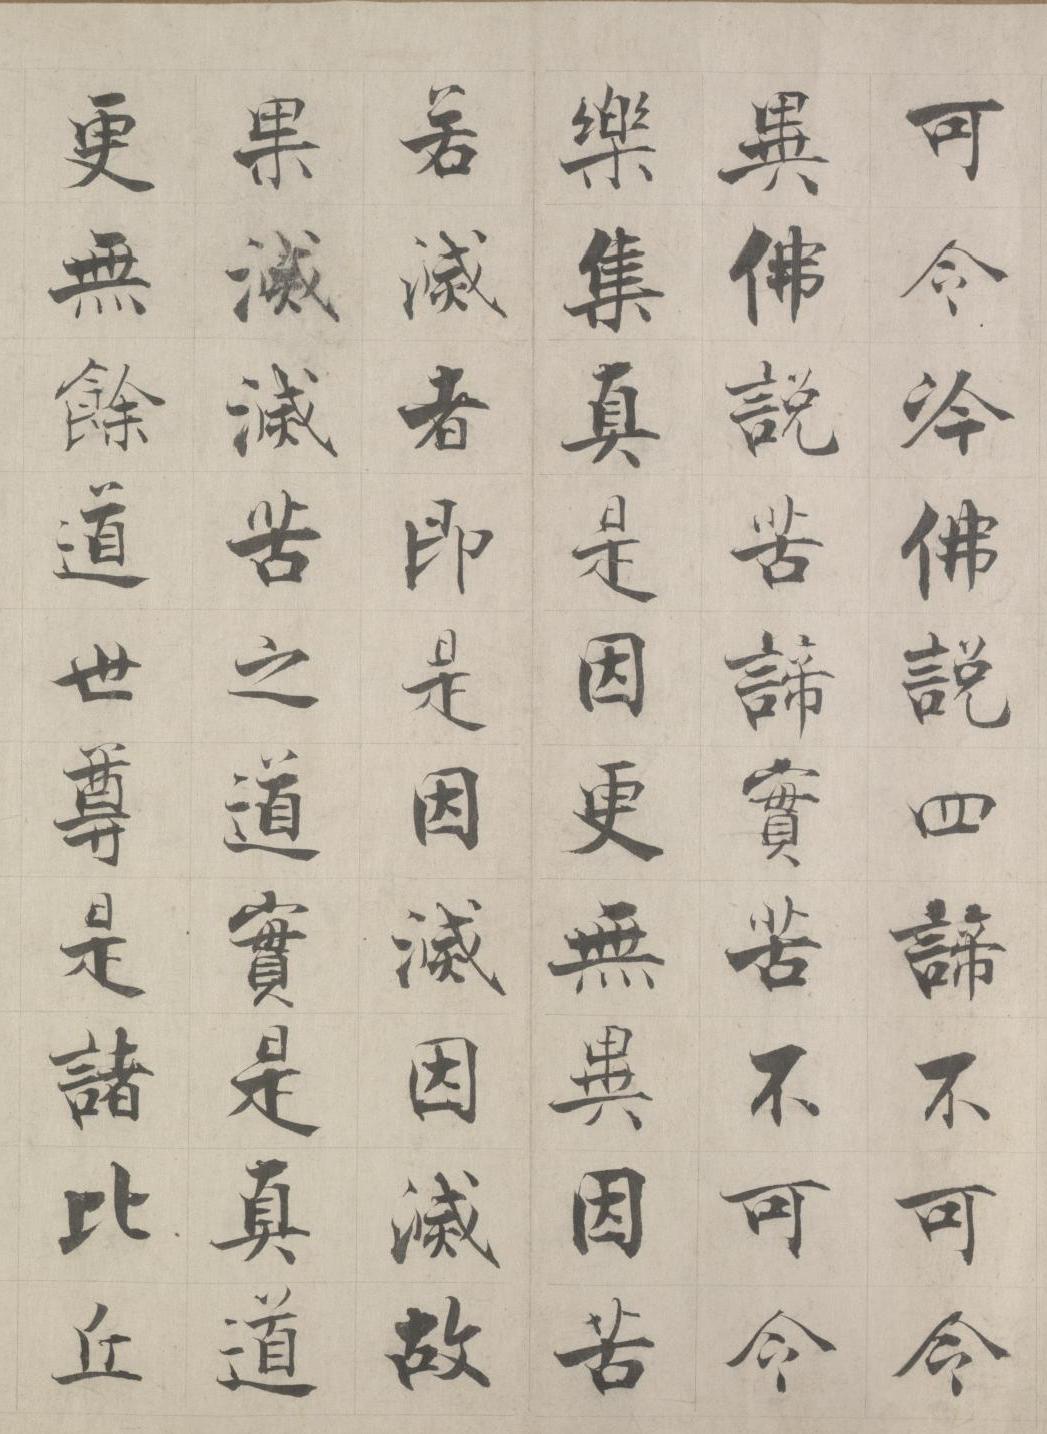 可令冷佛説四諦不可令
異佛説苦諦實苦不可令
樂集真是因更無異因苦
若滅者即是因滅因滅故
果滅滅苦之道實是真道
更無餘道世尊是諸比丘